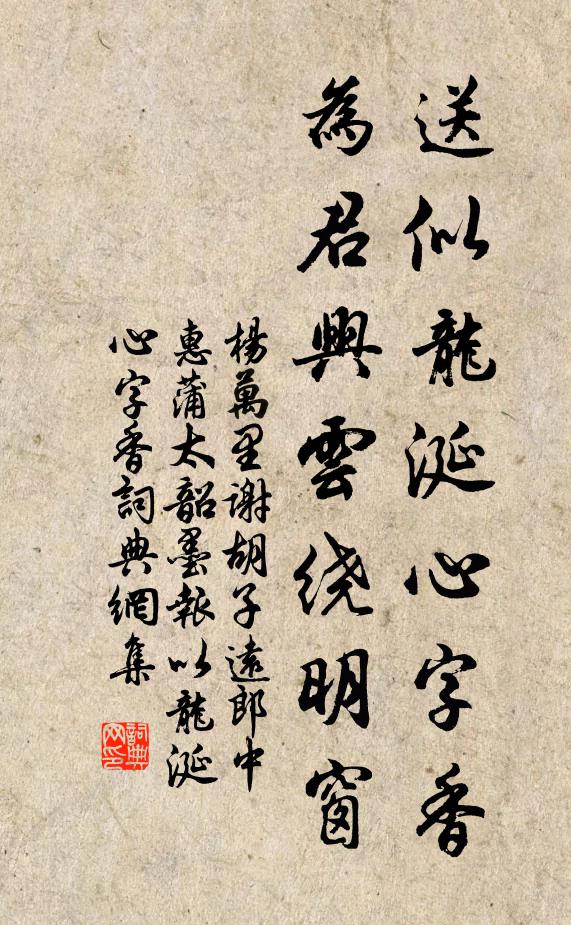 送似龍涎心字香
為君興雲绕明窗
楊萬里谢胡子遠郎中
惠蒲太韶墨報以龍涎
心字香詞典網集
詞典網印